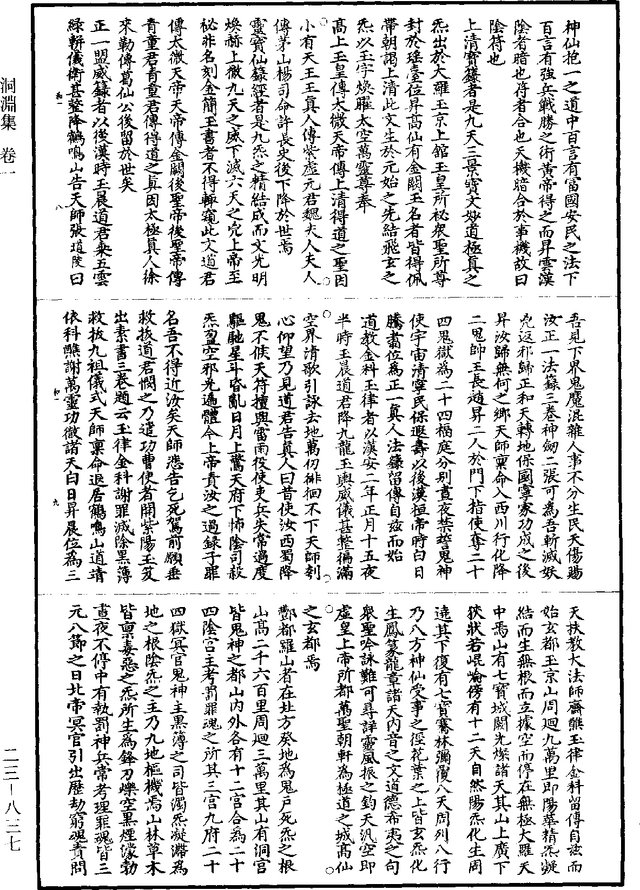 洞淵集 卷一
二三—八三七
神仙抱一之道中百言有富國安民之法下
百言有強兵戰勝之術黃帝得之而昇雲漢
陰者暗也符者合也天機暗合於事機故曰
陰符也
上清寶籙者是九天三景寶文妙道極真之
炁出於大羅玉京上館玉皇所祕衆聖所尊
封於瑤臺位昇高仙有金闕玉名者皆得佩
帶朝謁上清此文生於元始之先結飛玄之
炁以主字煥羅太空萬靈尊奉
高上玉皇傳太微天帝傳上清得道之聖因
小有天王王真人傳紫虛元君魏夫人夫人
傳茅山楊司命許長史後下降於世焉
靈寶仙籙經者是九炁之精結成而文光明
煥赫上徹九天之威下滅六天之㐫上帝至
祕非名刻金簡玉書者不得輙窺此文道君
傳太微天帝天帝傳金闕後聖帝後聖帝傳
青童君青童君傳得道之真因太極真人徐
來勒傳葛仙公後留於世矣
正一盟威籙者以後漢時玉晨道君乗五雲
綠輧儀衛甚整降鶴鳴山告天師張道陵曰
吾見下界鬼魔混雜人事不分生民夭傷賜
汝正一法籙三卷神劒二張可為吾斬滅妖
㐫返邪歸正和天轉地保國寧家功成之後
昇汝歸無何之鄉天師稟命入西川行化降
二鬼帥王長趙昇二人於門下指使奪二十
四鬼獄為二十四福庭分別晝夜禁警鬼神
使宇宙清寧民保遐壽以後漢桓帝時白日
騰翥位為正一真人法籙留傳自兹而始
道教金科玉律者以漢安二年正月十五夜
半時玉晨道君降九龍玉輿威儀甚整徧滿
空界清歌引詠去地萬仞徘徊不下天師刳
心仰望乃見道君告真人曰昔使汝西蜀降
鬼不俟天符擅興雷雨役使吏兵失常過度
驅馳星斗昏亂日月上驚天府下怖陰司殺
炁盈空邪先遍體今上帝責汝之過錄子罪
名吾不得近汝矣天師悲告乞死駕前願垂
救拔道君憫之乃遣功曹使者開紫陽玉笈
出素書三卷題云玉律金科謝罪滅除黒簿
救拔九祖儀式天師稟命退居鶴鳴山道靖
依科醮謝萬靈功徹諸天白日昇晨位為三
天扶教大法師齋醮玉律金科留傳自兹而
始玄都玉京山周迴九萬里即陽華精炁凝
結而生無根而立據空而停在無極大羅天
中焉山有七寶城闕光燦諸天其山上廣下
狹狀若崐崘傍有十二天自然陽炁化生周
遶其下復有七寶騫林彌復八天周列八行
乃八方神仙受事之徑花葉之上皆玄炁化
生鳳篆龍章諸天内音之文道德希夷之句
衆聖吟詠難可尋詳靈風振之鈞天汎空即
虛皇上帝所都萬聖朝軒為極道之城高仙
之玄都焉
酆都羅山者在北方癸地為鬼戸死炁之根
山高二千六百里周迴三萬里其山有洞宫
皆鬼神之都山内外各有十二宫合為二十
四陰宫主考罰罪魂之所其三宫九府二十
四獄冥官鬼神主黒簿之司皆濁炁凝滯為
地之根陰炁之主乃九地樞機焉山林草木
皆禀毒惡之炁所生為鋒刀爍空黒煙爆勃
晝夜不停中有執罰神兵常考理罪魂皆三
元八節之日北帝冥官引出歷劫窮魂責問